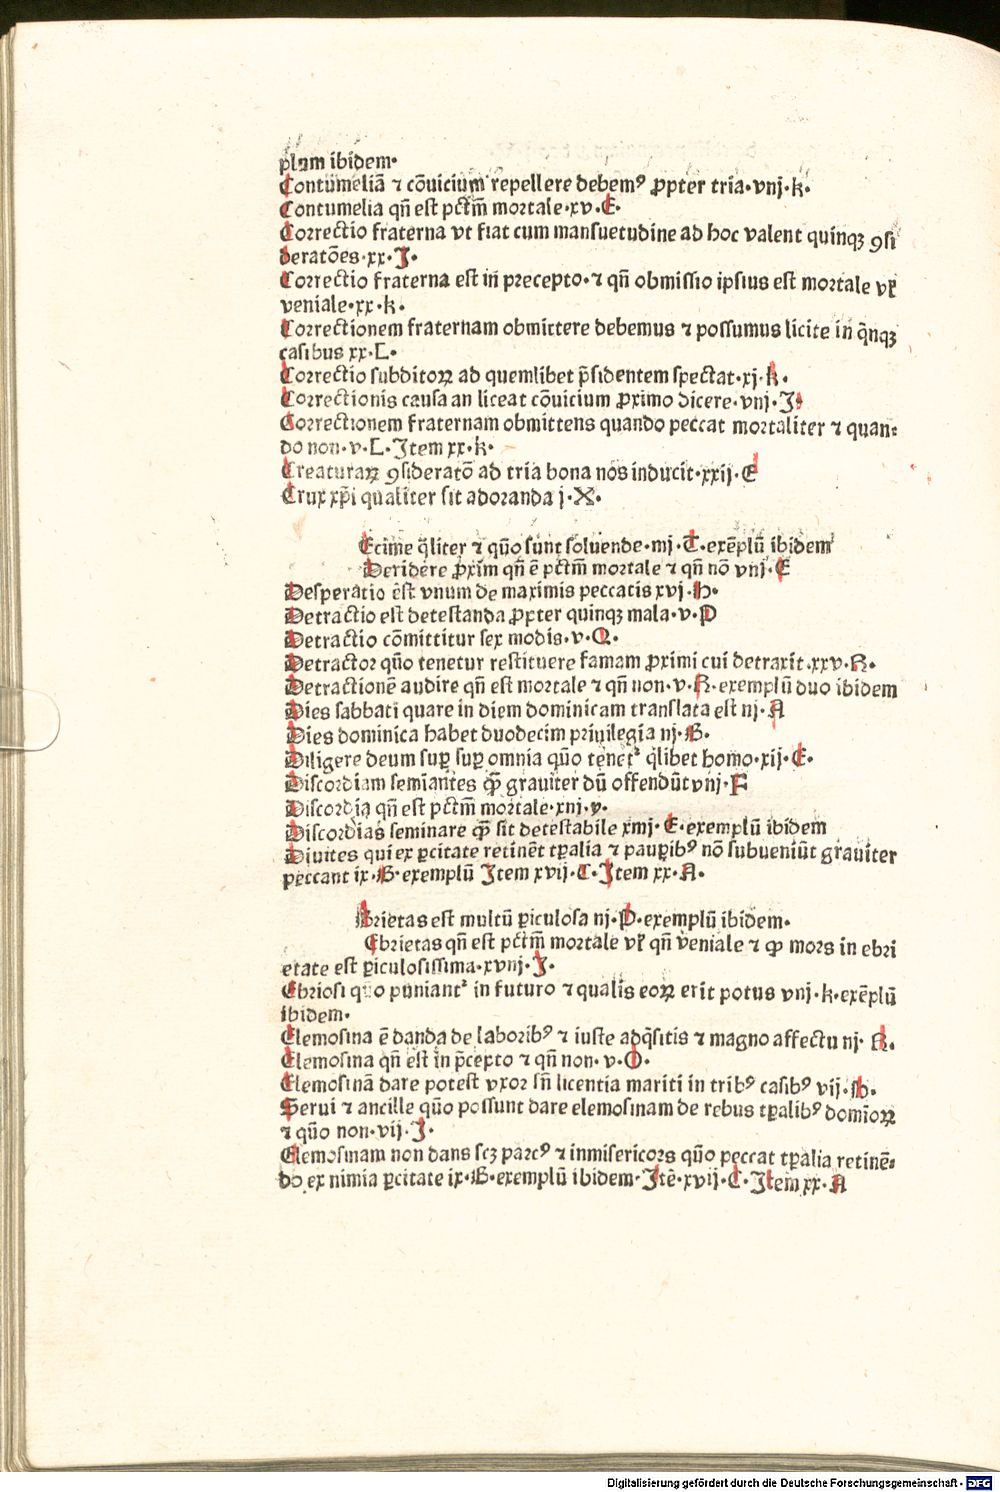 plum ibidem·
Contumeliā ⁊ cōuicium repellere debemꝰ ꝓpter tria·vııj·k·
Contumelia qn̄ est pctm̄ mortale·xv·E·
Correctio fraterna vt fiat cum mansuetudine ad hoc valent quinqꝫ ꝯsi
deratōes·xx·J·
Correctio fraterna est in precepto·⁊ qn̄ obmissio ipsius est mortale vl̛
veniale·xx·k·
Correctionem fraternam obmittere debemus ⁊ possumus licite in q̄nqꝫ
casibus xx·L·
Correctio subditoꝝ ad quemlibet p̄sidentem spectat·xj·k·
Correctionis causa an liceat cōuicium ꝓximo dicere·vııj·J·
Correctionem fraternam obmittens quando peccat mortaliter ⁊ quan⸗
do non·v·L·Jtem xx·k·
Creaturaꝝ ꝯsideratō ad tria bona nos inducit·xxij·E
Crux xp̄i qualiter sit adoranda j·X·
Ecime q̄liter ⁊ quō sunt soluende·ıııj·T·exēplū ibidem
Deridere ꝓxim qn̄ ē pctm̄ mortale ⁊ qn̄ nō vııj·E
Desperatio est vnum de maximis peccatis xvj·H·
Detractio est detestanda ꝓpter quinqꝫ mala·v·P
Detractio cōmittitur sex modis·v·Q·
Detractor quō tenetur restituere famam ꝓximi cui detraxit·xxv·R·
Detractionē audire qn̄ est mortale ⁊ qn̄ non·v·R·exemplū duo ibidem
Dies sabbati quare in diem dominicam translata est ııj·A
Dies dominica habet duodecim priuilegia ııj·B·
Diligere deum suꝑ suꝑ omnia quō tenet² q̄libet homo·xij·E·
Discordiam semīantes qꝫ̄ grauiter dū offendūt vııj·F
Discordia qn̄ est pctm̄ mortale·xııj·y·
Discordias seminare qꝫ̄ sit detestabile xıııj·E·exemplū ibidem
Diuites qui ex ꝑcitate retinēt tꝑalia ⁊ pauꝑibꝰ nō subueniūt grauiter
peccant ix·B·exemplū Jtem xvij·C·Jtem xx·A·
Brietas est multū ꝑiculosa ııj·P·exemplū ibidem·
Ebrietas qn̄ est pctm̄ mortale vl̛ qn̄ veniale ⁊ ꝙ mors in ebri
etate est ꝑiculosissima·xvııj·J·
Ebriosi quo puniant² in futuro ⁊ qualis eoꝝ erit potus vııj·k·exēplū
ibidem·
Elemosina ē danda de laboribꝰ ⁊ iuste adq̄sitis ⁊ magno affectu ııj·R·
Elemosina qn̄ est in p̄cepto ⁊ qn̄ non·v·O·
Elemosinā dare potest vxor sn̄ licentia mariti in tribꝰ casibꝰ vij·H·
Serui ⁊ ancille quō possunt dare elemosinam de rebus tꝑalibꝰ domīoꝝ
⁊ quō non·vij·J·
Elemosinam non dans scꝫ parcꝰ ⁊ inmisericors quō peccat tꝑalia retinē⸗
do ex nimia ꝑcitate ix·B·exemplū ibidem·Jtē·xvij·C·Jtem xx·A
Digitalisierung gefördert durch die Deutsche Forschungsgemeinschaft - DFG